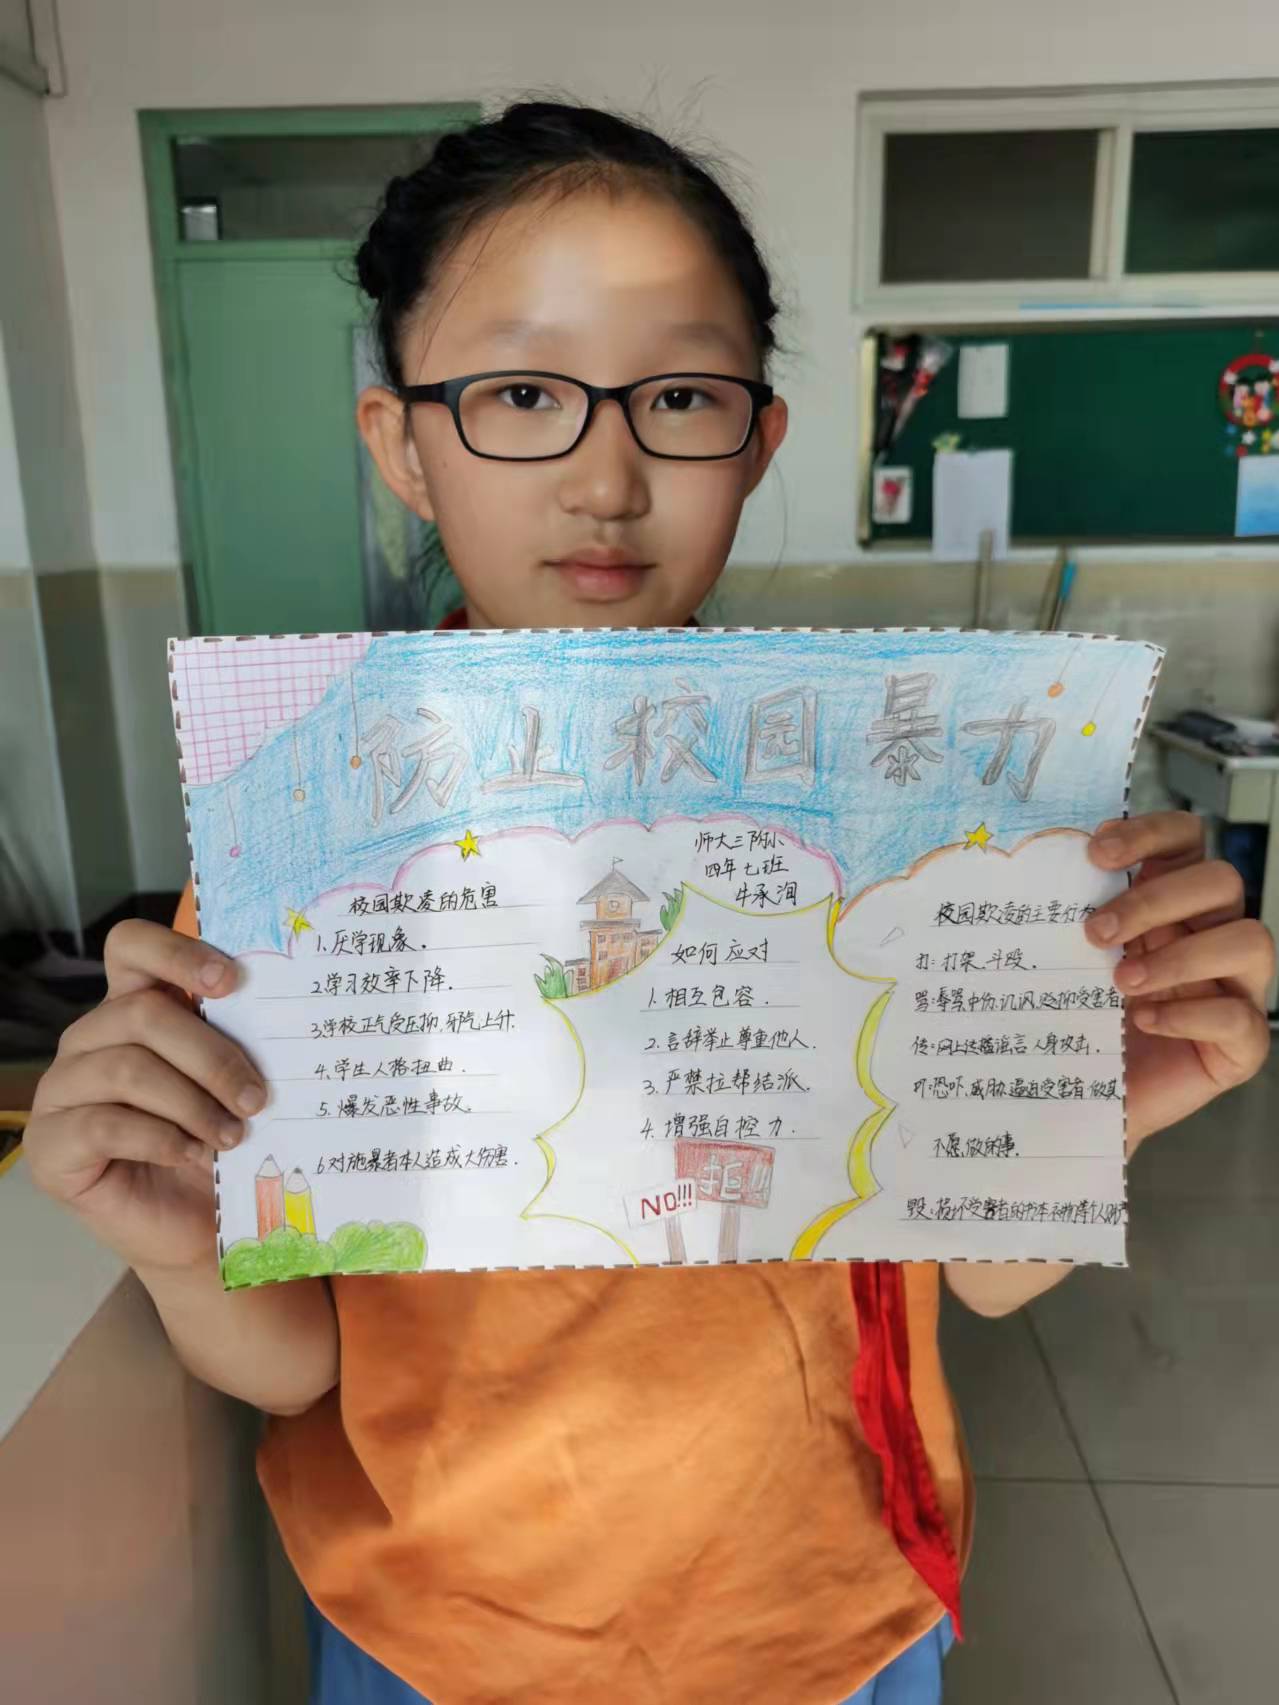 防止校园暴力
师大三附小
四年七班
牛承洵
校园欺凌的危害
1.厌学现象.
2.学习效率下降.
3.学校正气受压抑.邪气上升.
4.学生人格扭曲.
5.爆发恶性事故.
6对施暴者本人造成大伤害.
如何应对
1.相互包容.
2.言辞举止尊重他人.
3.严禁拉帮结派.
4.增强自控力.
NO!!!
拒!!
校园欺凌的主要行为
打:打架.斗殴.
骂:辱骂.中伤.讥讽.贬抑受害者
传:网上传播谣言人身攻击.
吓:恐吓.威胁.逼迫受害者做其
不愿做的事.
毁:损坏受害者的书本衣物等个人财产